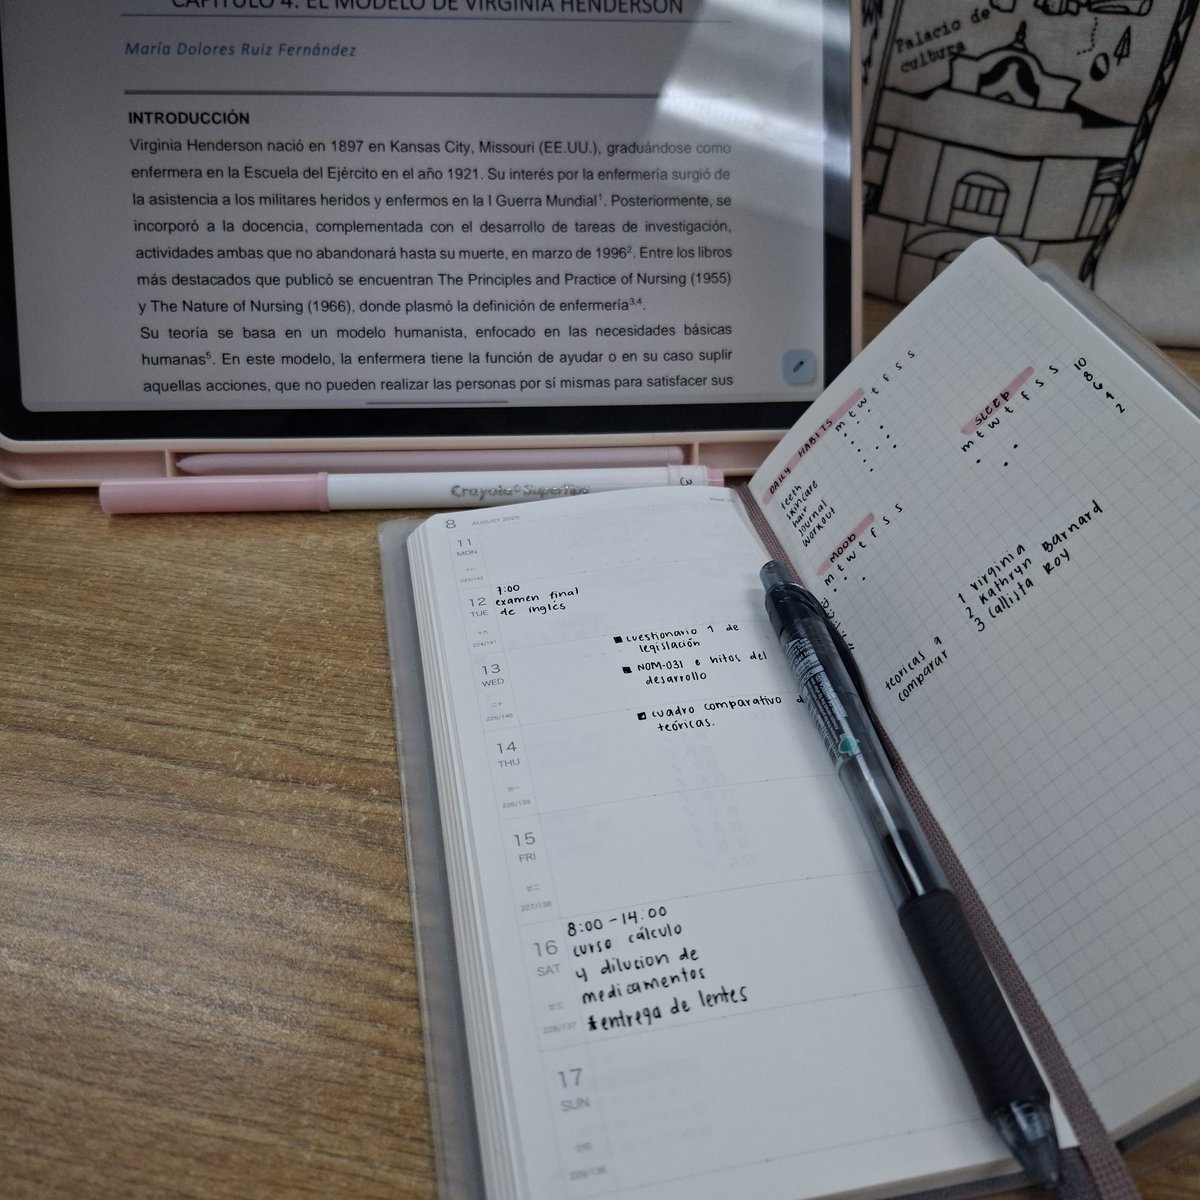 CAPÍTULO 4. EL MODELO DE VIRGINIA HENDERSON
María Dolores Ruiz Fernández
INTRODUCCIÓN
Virginia Henderson nació en 1897 en Kansas City, Missouri (EE.UU.), graduándose como
enfermera en la Escuela del Ejército en el año 1921. Su interés por la enfermería surgió de
la asistencia a los militares heridos y enfermos en la I Guerra Mundial¹. Posteriormente, se
incorporó a la docencia, complementada con el desarrollo de tareas de investigación,
actividades ambas que no abandonará hasta su muerte, en marzo de 1996². Entre los libros
más destacados que publicó se encuentran The Principles and Practice of Nursing (1955)
y The Nature of Nursing (1966), donde plasmó la definición de enfermería³,⁴.
Su teoría se basa en un modelo humanista, enfocado en las necesidades básicas
humanas⁵. En este modelo, la enfermera tiene la función de ayudar o en su caso suplir
aquellas acciones, que no pueden realizar las personas por sí mismas para satisfacer sus
Palacio de
cultura
Crayola Supertips
8 AUGUST 2025
11
MON
12
TUE
7:00
examen final
de inglés
224/141
13
WED
cuestionario 1 de
legislación
NOM-031 e hitos del
desarrollo
225/140
cuadro comparativo
teóricas.
14
THU
226/139
15
FRI
227/138
16
SAT
8:00 - 14:00
curso cálculo
y dilucion de
medicamentos
*entrega de lentes
228/137
17
SUN
229/136
DAILY HABITS
m t w t f s s
teeth
skincare
hair
journal
workout
SLEEP
m t w t f s s
10
8
6
4
2
MOOD
m t w t f s s
teoricas a
comparar
1 Virginia
2 Kathryn Barnard
3 Callista Roy